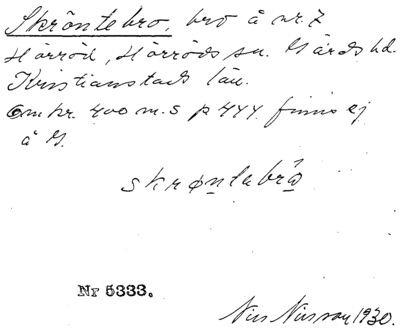 Skröntebro, bro å nr. 7
Hörröd, Hörröds sn. Gärds hd.
Kristianstads län.
Omkr. 400 m. S p 444. finns ej
å G.
skrøntabro
Nr 5333.
Nils Nilsson 1930.